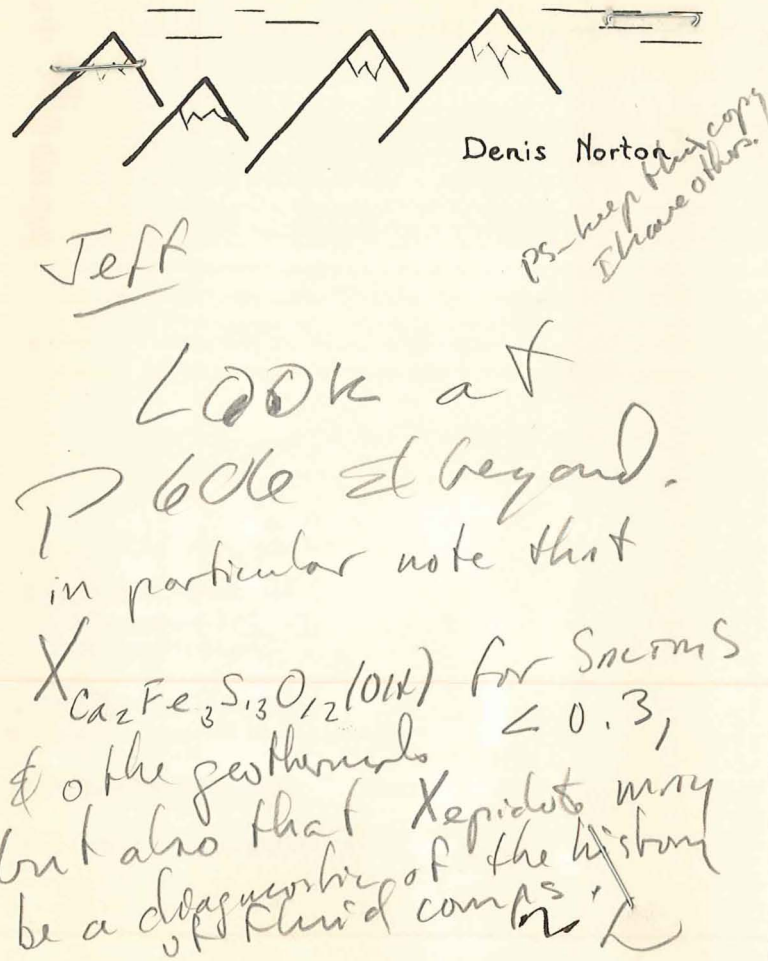 Denis Norton
ps-keep this copy
I have others.
Jeff
Look at
P 606 & beyond.
in particular note that
X Ca2Fe3Si3O12(OH) for
< 0.3,
& other geothermals
but also that Xepidote may
be a diagnostic of the history
of fluid comps.